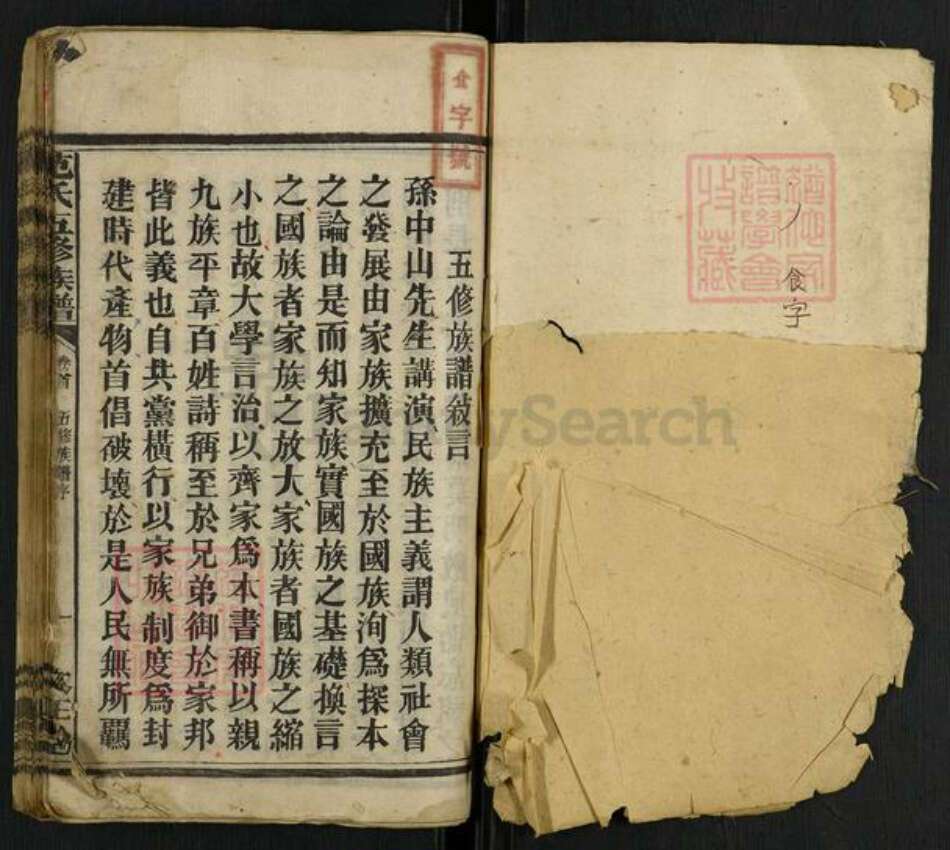 食字號
食字
五修族譜敍言
孫中山先生講演民族主義謂人類社會
之發展由家族擴充至於國族洵爲探本
之論由是而知家族實國族之基礎換言
之國族者家族之放大家族者國族之縮
小也故大學言治以齊家爲本書稱以親
九族平章百姓詩稱至於兄弟御於家邦
皆此義也自共黨橫行以家族制度爲封
建時代產物首倡破壞於是人民無所羈
范氏五修族譜
卷首
五修族譜序
一
MySearch